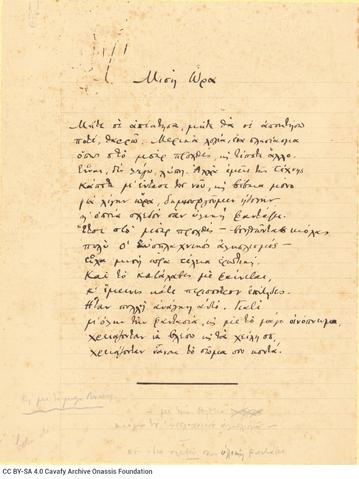 Μισή Ώρα
Μήτε σε απέκτησα, μήτε θα σε αποκτήσω
ποτέ, θαρρώ. Μερικά λόγια, ένα πλησίασμα
όπως στο μπαρ προχθές, κι τίποτε άλλο.
Είναι, δεν λέγω, λύπη. Αλλά εμείς της Τέχνης
κάποτε μ' έντασι του νου, κι βέβαια μόνο
για λίγην ώρα, δημιουργούμεν ηδονήν
η οποία σχεδόν σαν υλική φαντάζει.
Έτσι στο μπαρ προχθές — βοηθώντας κιόλας
πολύ ο ευσπλαχνικός αλκολισμός —
είχα μισή ώρα τέλεια ερωτική.
Και το κατάλαβες με φαίνεται,
κ' έμεινες κάτι περισσότερον επίτηδες.
Ήταν πολλή ανάγκη αυτό. Γιατί
μ' όλην την φαντασία, κι με το μάγο οινόπνευμα,
χρειάζονταν να βλέπω κι τα χείλη σου,
χρειάζονταν νάναι το σώμα σου κοντά.
CC BY-SA 4.0 Cavafy Archive Onassis Foundation